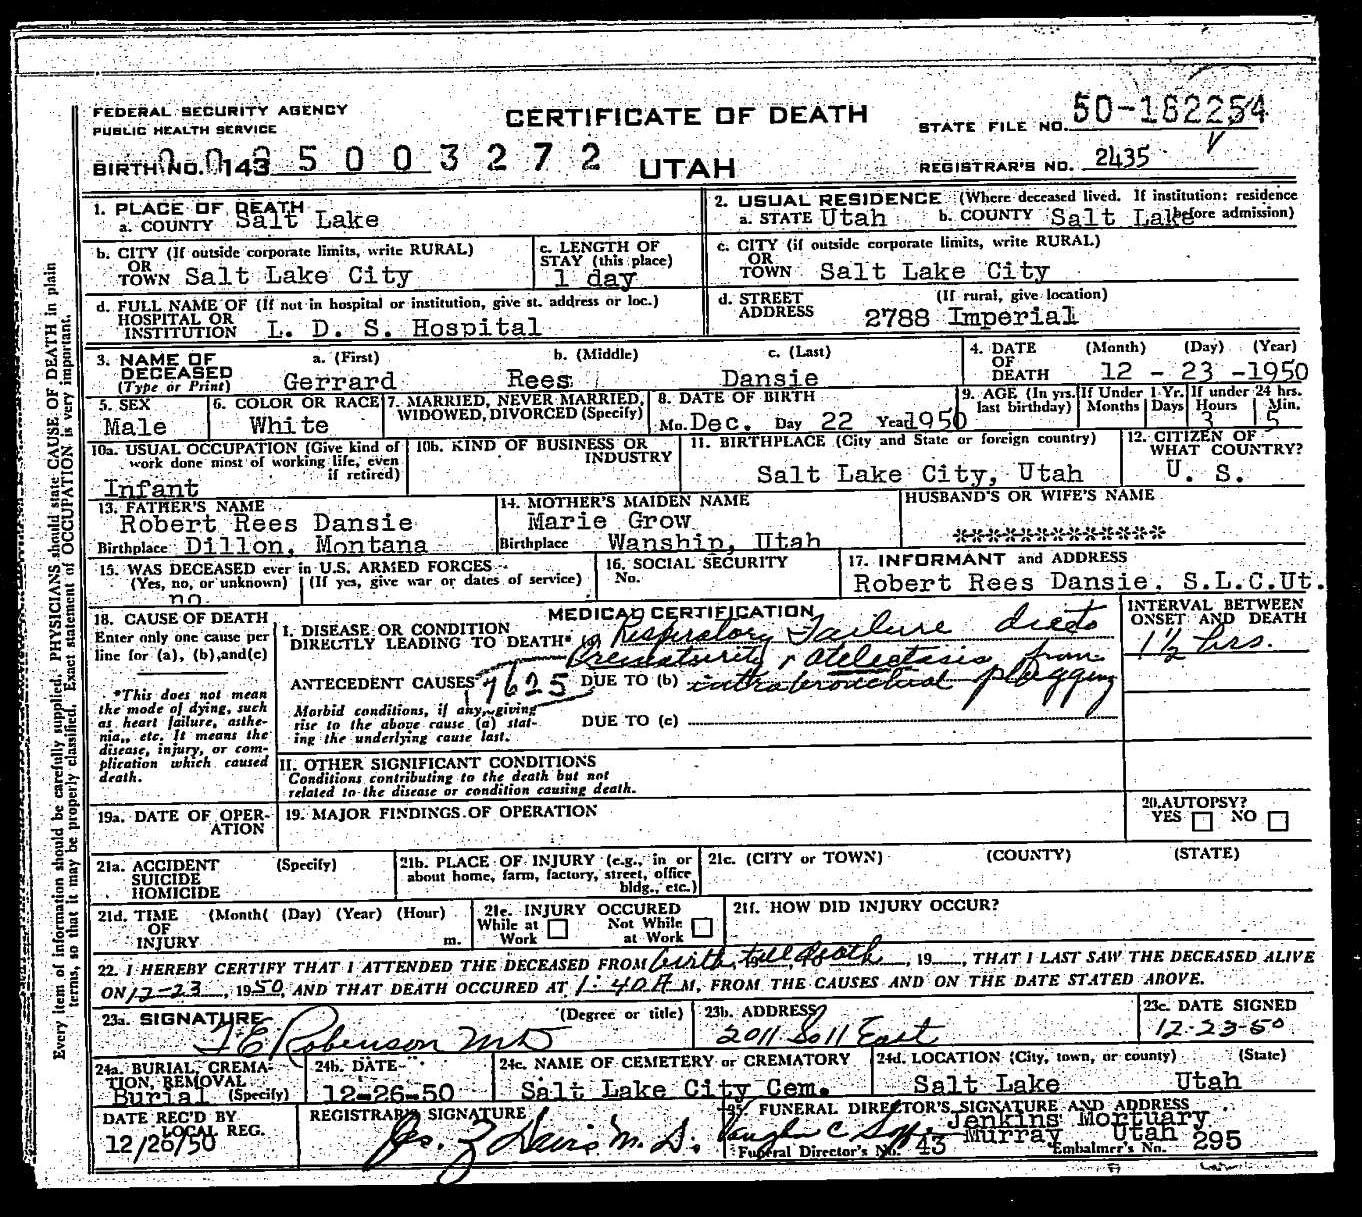 FEDERAL SECURITY AGENCY
PUBLIC HEALTH SERVICE
CERTIFICATE OF DEATH
STATE FILE NO. 50-182254
BIRTH NO. 143 5003272
UTAH
REGISTRAR'S NO. 2435
Every item of information should be carefully supplied. PHYSICIANS should state CAUSE OF DEATH in plain
terms, so that it may be properly classified. Exact statement of OCCUPATION is very important.
1. PLACE OF DEATH
a. COUNTY Salt Lake
2. USUAL RESIDENCE (Where deceased lived. If institution: residence
a. STATE Utah b. COUNTY Salt Lake before admission)
b. CITY (If outside corporate limits, write RURAL)
OR
TOWN Salt Lake City
c. LENGTH OF
STAY (this place)
1 day
c. CITY (if outside corporate limits, write RURAL)
OR
TOWN Salt Lake City
d. FULL NAME OF (If not in hospital or institution, give st. address or loc.)
HOSPITAL OR
INSTITUTION L. D. S. Hospital
d. STREET (If rural, give location)
ADDRESS 2788 Imperial
3. NAME OF a. (First) b. (Middle) c. (Last)
DECEASED
(Type or Print) Gerrard Rees Dansie
4. DATE (Month) (Day) (Year)
OF
DEATH 12 - 23 -1950
5. SEX
Male
6. COLOR OR RACE
White
7. MARRIED, NEVER MARRIED,
WIDOWED, DIVORCED (Specify)
8. DATE OF BIRTH
Mo. Dec. Day 22 Year 1950
9. AGE (In yrs.
last birthday)
If Under 1 Yr.
Months Days
If under 24 hrs.
Hours Min.
3 5
10a. USUAL OCCUPATION (Give kind of
work done most of working life, even
if retired)
Infant
10b. KIND OF BUSINESS OR
INDUSTRY
11. BIRTHPLACE (City and State or foreign country)
Salt Lake City, Utah
12. CITIZEN OF
WHAT COUNTRY?
U. S.
13. FATHER'S NAME
Robert Rees Dansie
Birthplace Dillon, Montana
14. MOTHER'S MAIDEN NAME
Marie Grow
Birthplace Wanship, Utah
HUSBAND'S OR WIFE'S NAME
************
15. WAS DECEASED ever in U.S. ARMED FORCES
(Yes, no, or unknown) (If yes, give war or dates of service)
no
16. SOCIAL SECURITY
No.
17. INFORMANT and ADDRESS
Robert Rees Dansie. S.L.C.Ut.
18. CAUSE OF DEATH
Enter only one cause per
line for (a), (b), and (c)
*This does not mean
the mode of dying, such
as heart failure, asthe-
nia, etc. It means the
disease, injury, or com-
plication which caused
death.
MEDICAL CERTIFICATION
I. DISEASE OR CONDITION
DIRECTLY LEADING TO DEATH* (a) Respiratory Failure due to
Prematurity & atelectasis from
ANTECEDENT CAUSES 7625 DUE TO (b) intrabronchial plugging
Morbid conditions, if any, giving
rise to the above cause (a) stat-
ing the underlying cause last.
DUE TO (c)
INTERVAL BETWEEN
ONSET AND DEATH
1½ hrs.
II. OTHER SIGNIFICANT CONDITIONS
Conditions contributing to the death but not
related to the disease or condition causing death.
19a. DATE OF OPER-
ATION
19. MAJOR FINDINGS OF OPERATION
20. AUTOPSY?
YES NO
21a. ACCIDENT (Specify)
SUICIDE
HOMICIDE
21b. PLACE OF INJURY (e.g., in or
about home, farm, factory, street, office
bldg., etc.)
21c. (CITY or TOWN) (COUNTY) (STATE)
21d. TIME (Month( (Day) (Year) (Hour)
OF
INJURY m.
21e. INJURY OCCURED
While at Not While
Work at Work
21f. HOW DID INJURY OCCUR?
22. I HEREBY CERTIFY THAT I ATTENDED THE DECEASED FROM birth, 19 till death, 19, THAT I LAST SAW THE DECEASED ALIVE
ON 12-23, 1950, AND THAT DEATH OCCURED AT 1:40 A M, FROM THE CAUSES AND ON THE DATE STATED ABOVE.
23a. SIGNATURE (Degree or title)
Robinson MD
23b. ADDRESS
2011 So 11 East
23c. DATE SIGNED
12-23-50
24a. BURIAL, CREMA-
TION, REMOVAL
Burial (Specify)
24b. DATE
12-26-50
24c. NAME OF CEMETERY or CREMATORY
Salt Lake City Cem.
24d. LOCATION (City, town, or county) (State)
Salt Lake Utah
DATE REC'D BY
LOCAL REG.
12/26/50
REGISTRAR'S SIGNATURE
M. D.
25. FUNERAL DIRECTOR'S SIGNATURE AND ADDRESS
Jenkins Mortuary
Murray Utah
Funeral Director's No. 43 Embalmer's No. 295